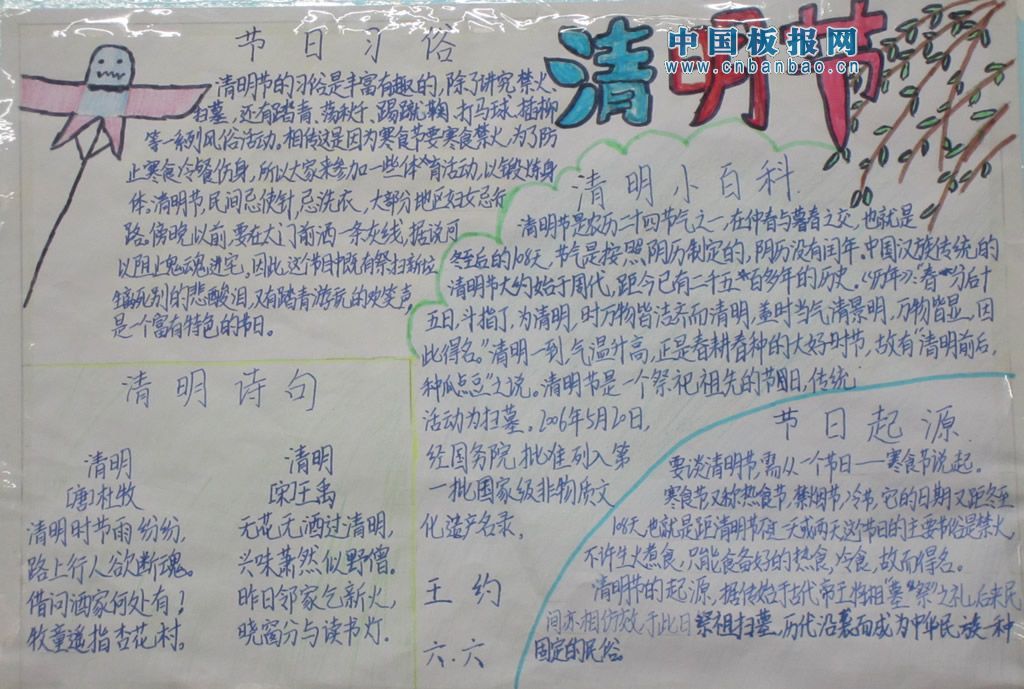 清明节
中国板报网
www.cnbanbao.cn
节日习俗
清明节的习俗是丰富有趣的,除了讲究禁火、
扫墓,还有踏青、荡秋千、踢蹴鞠、打马球、插柳
等一系列风俗活动。相传这是因为寒食节要寒食禁火,为了防
止寒食冷餐伤身,所以大家来参加一些体育活动,以锻炼身
体。清明节,民间忌使针,忌洗衣,大部分地区妇女忌行
路。傍晚以前,要在大门前洒一条灰线,据说可
以阻止鬼魂进宅,因此,这个节日中既有祭扫新坟
生离死别的悲酸泪,又有踏青游玩的欢笑声,
是一个富有特色的节日。
清明小百科
清明节是农历二十四节气之一,在仲春与暮春之交,也就是
冬至后的108天,节气是按照阴历制定的,阴历没有闰年。中国汉族传统的
清明节大约始于周代,距今已有二千五百多年的历史。《历书》:“春分后十
五日,斗指丁,为清明,时万物皆洁齐而清明,盖时当气清景明,万物皆显,因
此得名。”清明一到,气温升高,正是春耕春种的大好时节,故有“清明前后,
种瓜点豆”之说。清明节是一个祭祀祖先的节日,传统
活动为扫墓。2006年5月20日,
经国务院批准列入第
一批国家级非物质文
化遗产名录。
王约
六.六
清明诗句
清明
[唐]杜牧
清明时节雨纷纷,
路上行人欲断魂。
借问酒家何处有!
牧童遥指杏花村。
清明
[宋]王禹
无花无酒过清明,
兴味萧然似野僧。
昨日邻家乞新火,
晓窗分与读书灯.
节日起源
要谈清明节,需从一个节日——寒食节说起.
寒食节又称热食节,禁烟节,冷节,它的日期又距冬至
108天,也就是距清明节不过一天或两天这个节日的主要节俗是禁火,
不许生火煮食,只能食备好的热食,冷食,故而得名。
清明节的起源,据传始于古代帝王将相“墓祭”之礼,后来民
间亦相仿效于此日祭祖扫墓,历代沿袭而成为中华民族一种
固定的民俗。